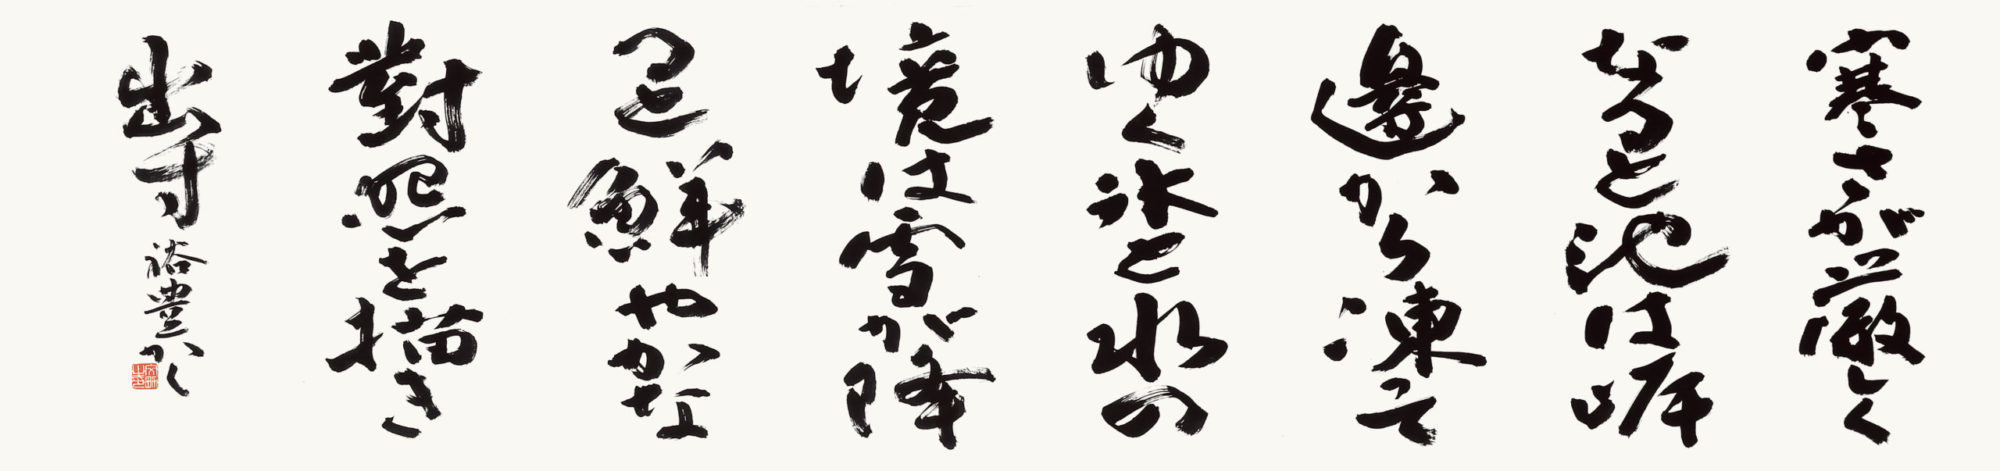 寒さが厳しく
なると池は岸
邊から凍て
ゆく氷と水の
境は雪が降
ると鮮やかな
對照を描き
出す 裕堂かく